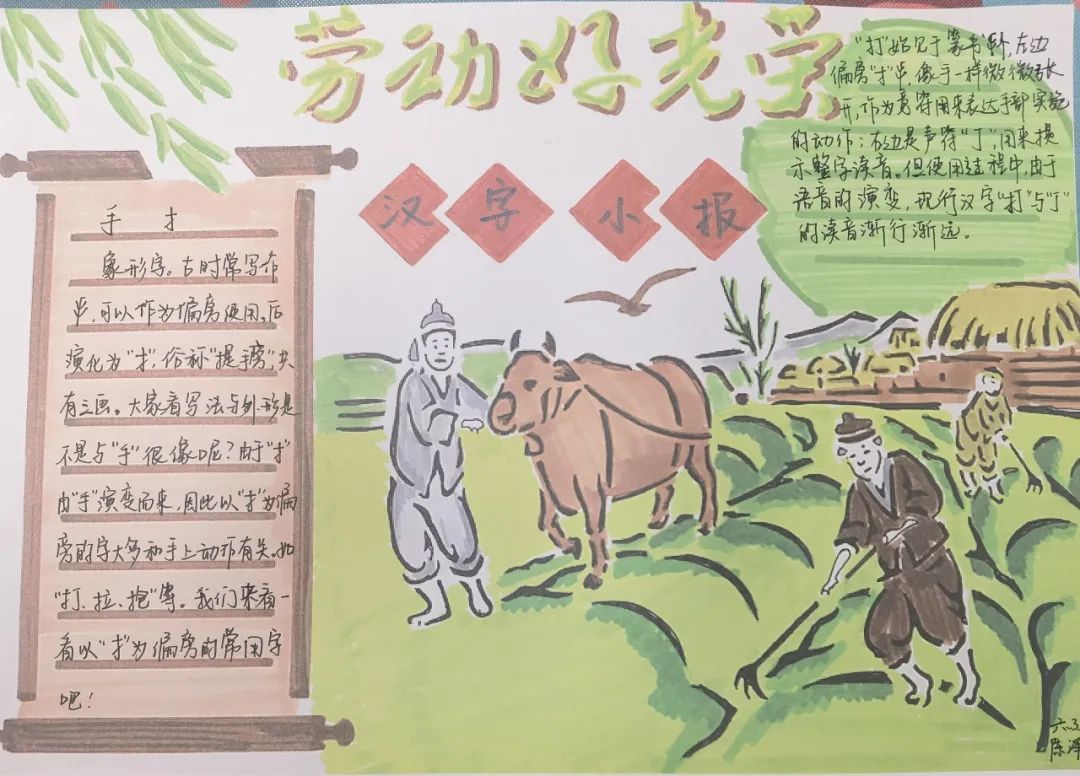 劳动好光荣
汉字小报
手 扌
象形字。古时常写布
可以作为偏旁使用。后
演化为"扌",俗称"提手旁",共
有三画。大家看写法与外形是
不是与"手"很像呢?由于"扌"
由"手"演变而来,因此以"扌"为偏
旁的字大多和手上动作有关。如
"打、拉、抱"等。我们来看一
看以"扌"为偏旁的常用字
吧!
"打"始见于篆书 左边
偏旁"扌" 像手一样微微张
开,作为意符用来表达手部实施
的动作;右边是声符"丁",用来提
示整字读音。但使用过程中,由于
语音的演变,现行汉字"打"与"丁"
的读音渐行渐远。
陈泽